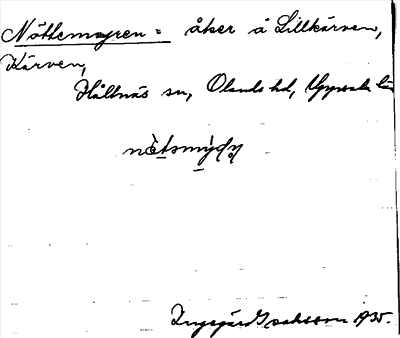 Nöttemyren = åker å Lillkärven,
Kärven,
Hållnäs sn, Olands hd, Uppsala län
Ingegärd Isaksson 1935.